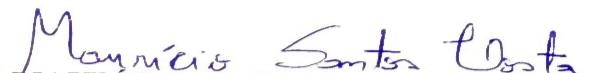 Maurício Santos Costa